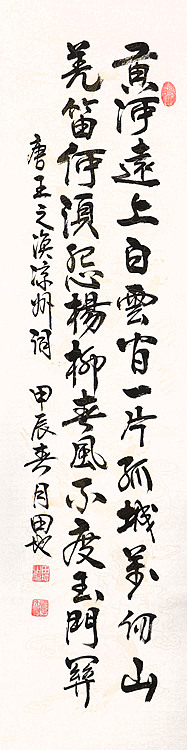 黄河遠上白雲間一片孤城萬仞山
羌笛何須怨楊柳春風不度玉門關
唐王之渙涼州詞 甲辰春月